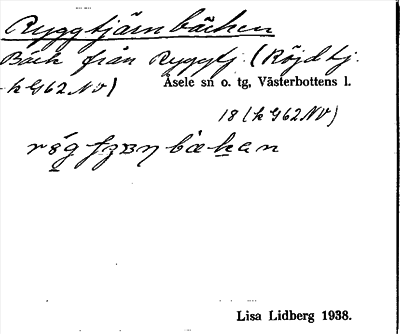 Ryggtjärnbäcken
Bäck från Ryggtj. (Röjdtj.
k G62 NV)
Åsele sn o. tg, Västerbottens l.
18 (k G62 NV)
Lisa Lidberg 1938.